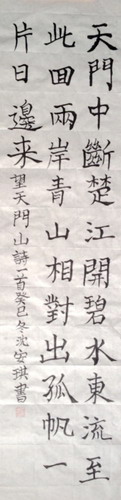 天門中斷楚江開碧水東流至
此回兩岸青山相對出孤帆一
片日邊来望天門山詩一首癸巳冬沈安琪書